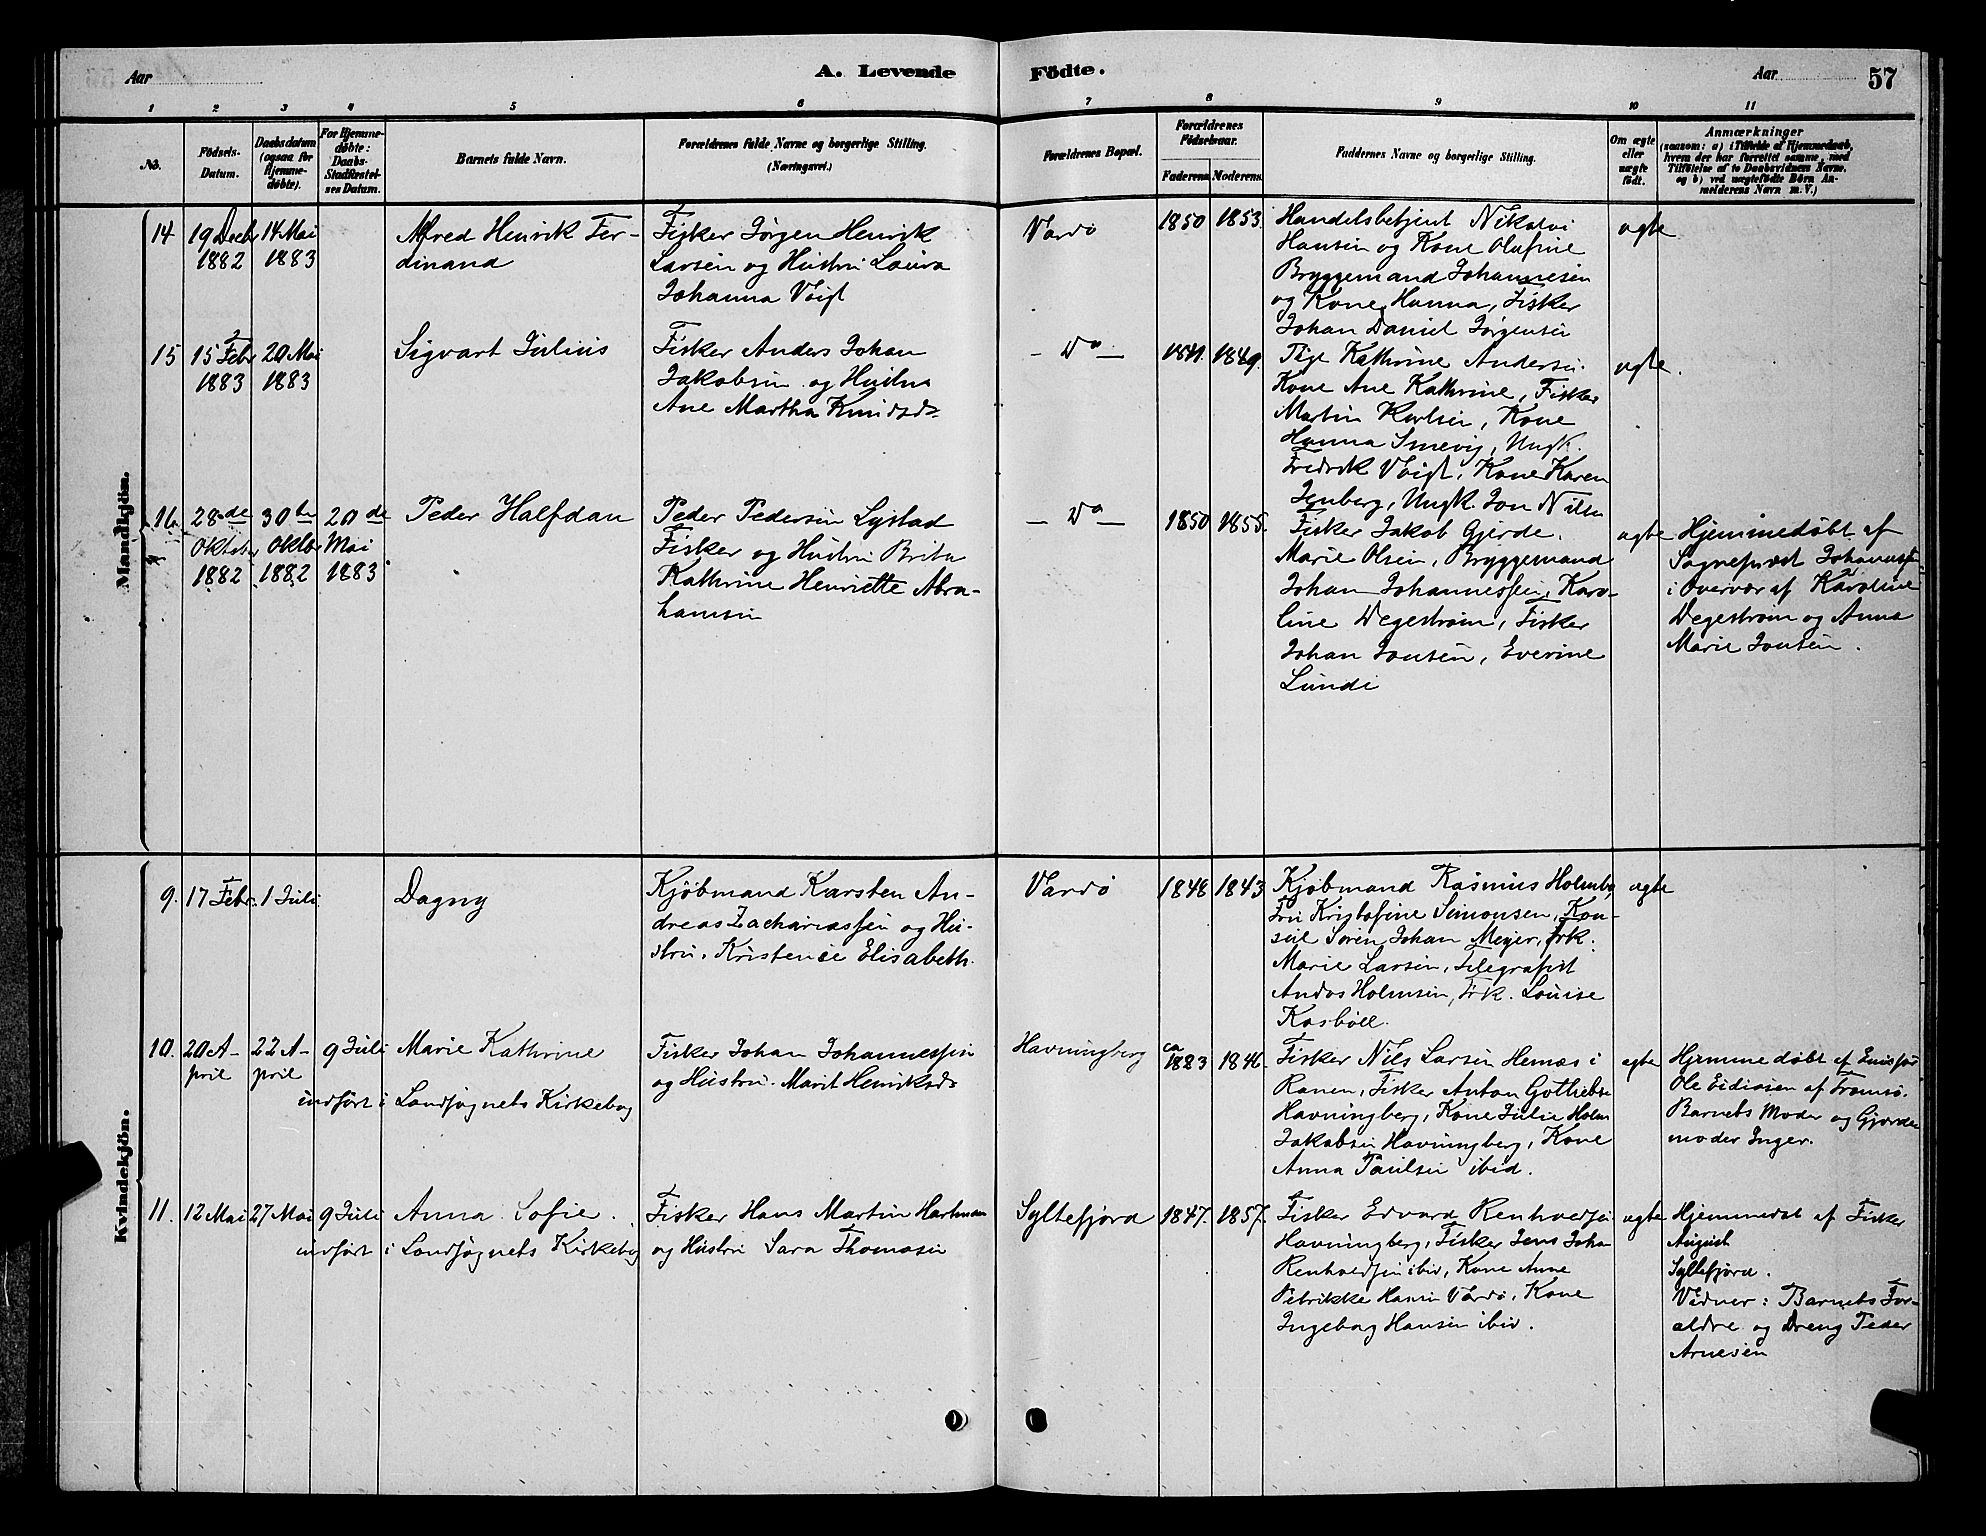 Aar
A. Levende
Födte.
Aar
57
1 2 3 4 5 6 7 8 9 10 11
No.
Födsels-
Datum.
Daabsdatum
(ogsaa for
Hjemme-
döbte).
For Hjemme-
döbte:
Daabs-
Stadfæstel-
ses Datum.
Barnets fulde Navn.
Forældrenes fulde Navne og borgerlige Stilling.
(Næringsvei.)
Forældrenes Bopæl.
Forældrenes
Födselsaar.
Faderens. Moderens.
Faddernes Navne og borgerlige Stilling.
Om ægte
eller
uægte
födt.
Anmærkninger
(saasom: a) i Tilfælde af Hjemmedaab,
hvem der har forrettet samme, med
Tilföielse af to Daabsvidners Navne,
og b) ved uægtefödte Börn An-
melderens Navn m. V.)
Mandkjön.
14
19 Decbr
1882
14 Mai
1883
Alfred Henrik Fer-
dinand
Fisker Jørgen Henrik
Larsen og Hustru Laura
Johanna Voigt
Vardø
1850
1853.
Handelsbetjent Nikolai
Hansen og Kone Olufine
Bryggemand Johannesen
og Kone Hanna, Fisker
Johan Daniel Jørgensen
ægte
15
15 Febr
1883
20 Mai
1883
Sigvart Julius
Fisker Anders Johan
Jakobsen og Hustru
Ane Martha Knudsdr
- Do -
1841.
1849.
Pige Kathrine Andersen.
Kone Ane Kathrine, Fisker
Martin Karlsen, Kone
Hanna Snevig, Ungk.
Fredrik Voigt, Kone Karen
Isnberg, Ungk. Jon Nilsen
ægte.
16
28de
Oktober
1882
30te
Oktbr
1882
20de
Mai
1883
Peder Halfdan
Peder Pedersen Lystad
Fisker og Hustru Brita
Kathrine Henriette Abra-
hamsen
- Do -
1850
1855.
Fisker Jakob Gjerde.
Marie Olsen, Bryggemand
Johan Johannessen, Karo-
line Degestrøm, Fisker
Johan Jonsen, Everine
Lunde
ægte
Hjemmedøbt af
Sognepræst Johannes
i Overvær af Karoline
Degestrøm og Anna
Marie Jonsen.
Kvindekjön.
9.
17 Febr.
1 Juli.
Dagny
Kjøbmand Karsten An-
dreas Zachariassen og Hu-
stru. Kristence Elisabeth.
Vardø
1848
1843
Kjøbmand Rasmus Holmbo,
Fru Kristofine Simonsen, Kon-
sul Søren Johan Meyer, Frk.
Marie Larsen, Telegrafist
Andas Holmsen, Frk. Louise
Kasbøll.
ægte
10.
20 A-
pril
22 A-
pril
9 Juli
Marie Kathrine
indført i Landsognets Kirkebog
Fisker Johan Johannessen
og Hustru. Marit Henriksdr
Havningberg
ca
1823
1846.
Fisker Nils Larsen Hemæs i
Ranen, Fisker Anton Gottliebsen
Havningberg, Kone Julie Holm
Jakobsen Havningberg, Kone
Anna Paulsen ibid.
ægte
Hjemmedøbt af
Ole Eidissen af Tromsø.
Barnets Moder og Gjorde-
moder Inger.
11.
12 Mai
27 Mai
9 Juli
Anna Sofie.
indført i Landsognets Kirkebog
Fisker Hans Martin Hartman
og Hustru Sara Thomasen
Syltefjord
1847.
1857.
Fisker Edvard Renholdsen
Havningberg, Fisker Jens Johan
Renholdsen ibid, Kone Anne
Petrikke Hansen Vardø, Kone
Ingeborg Hansen ibid.
ægte
Hjemmedøbt af Fisker
August
Syltefjord.
Vidner: Barnets For-
ældre og Dreng Peder
Arnesen